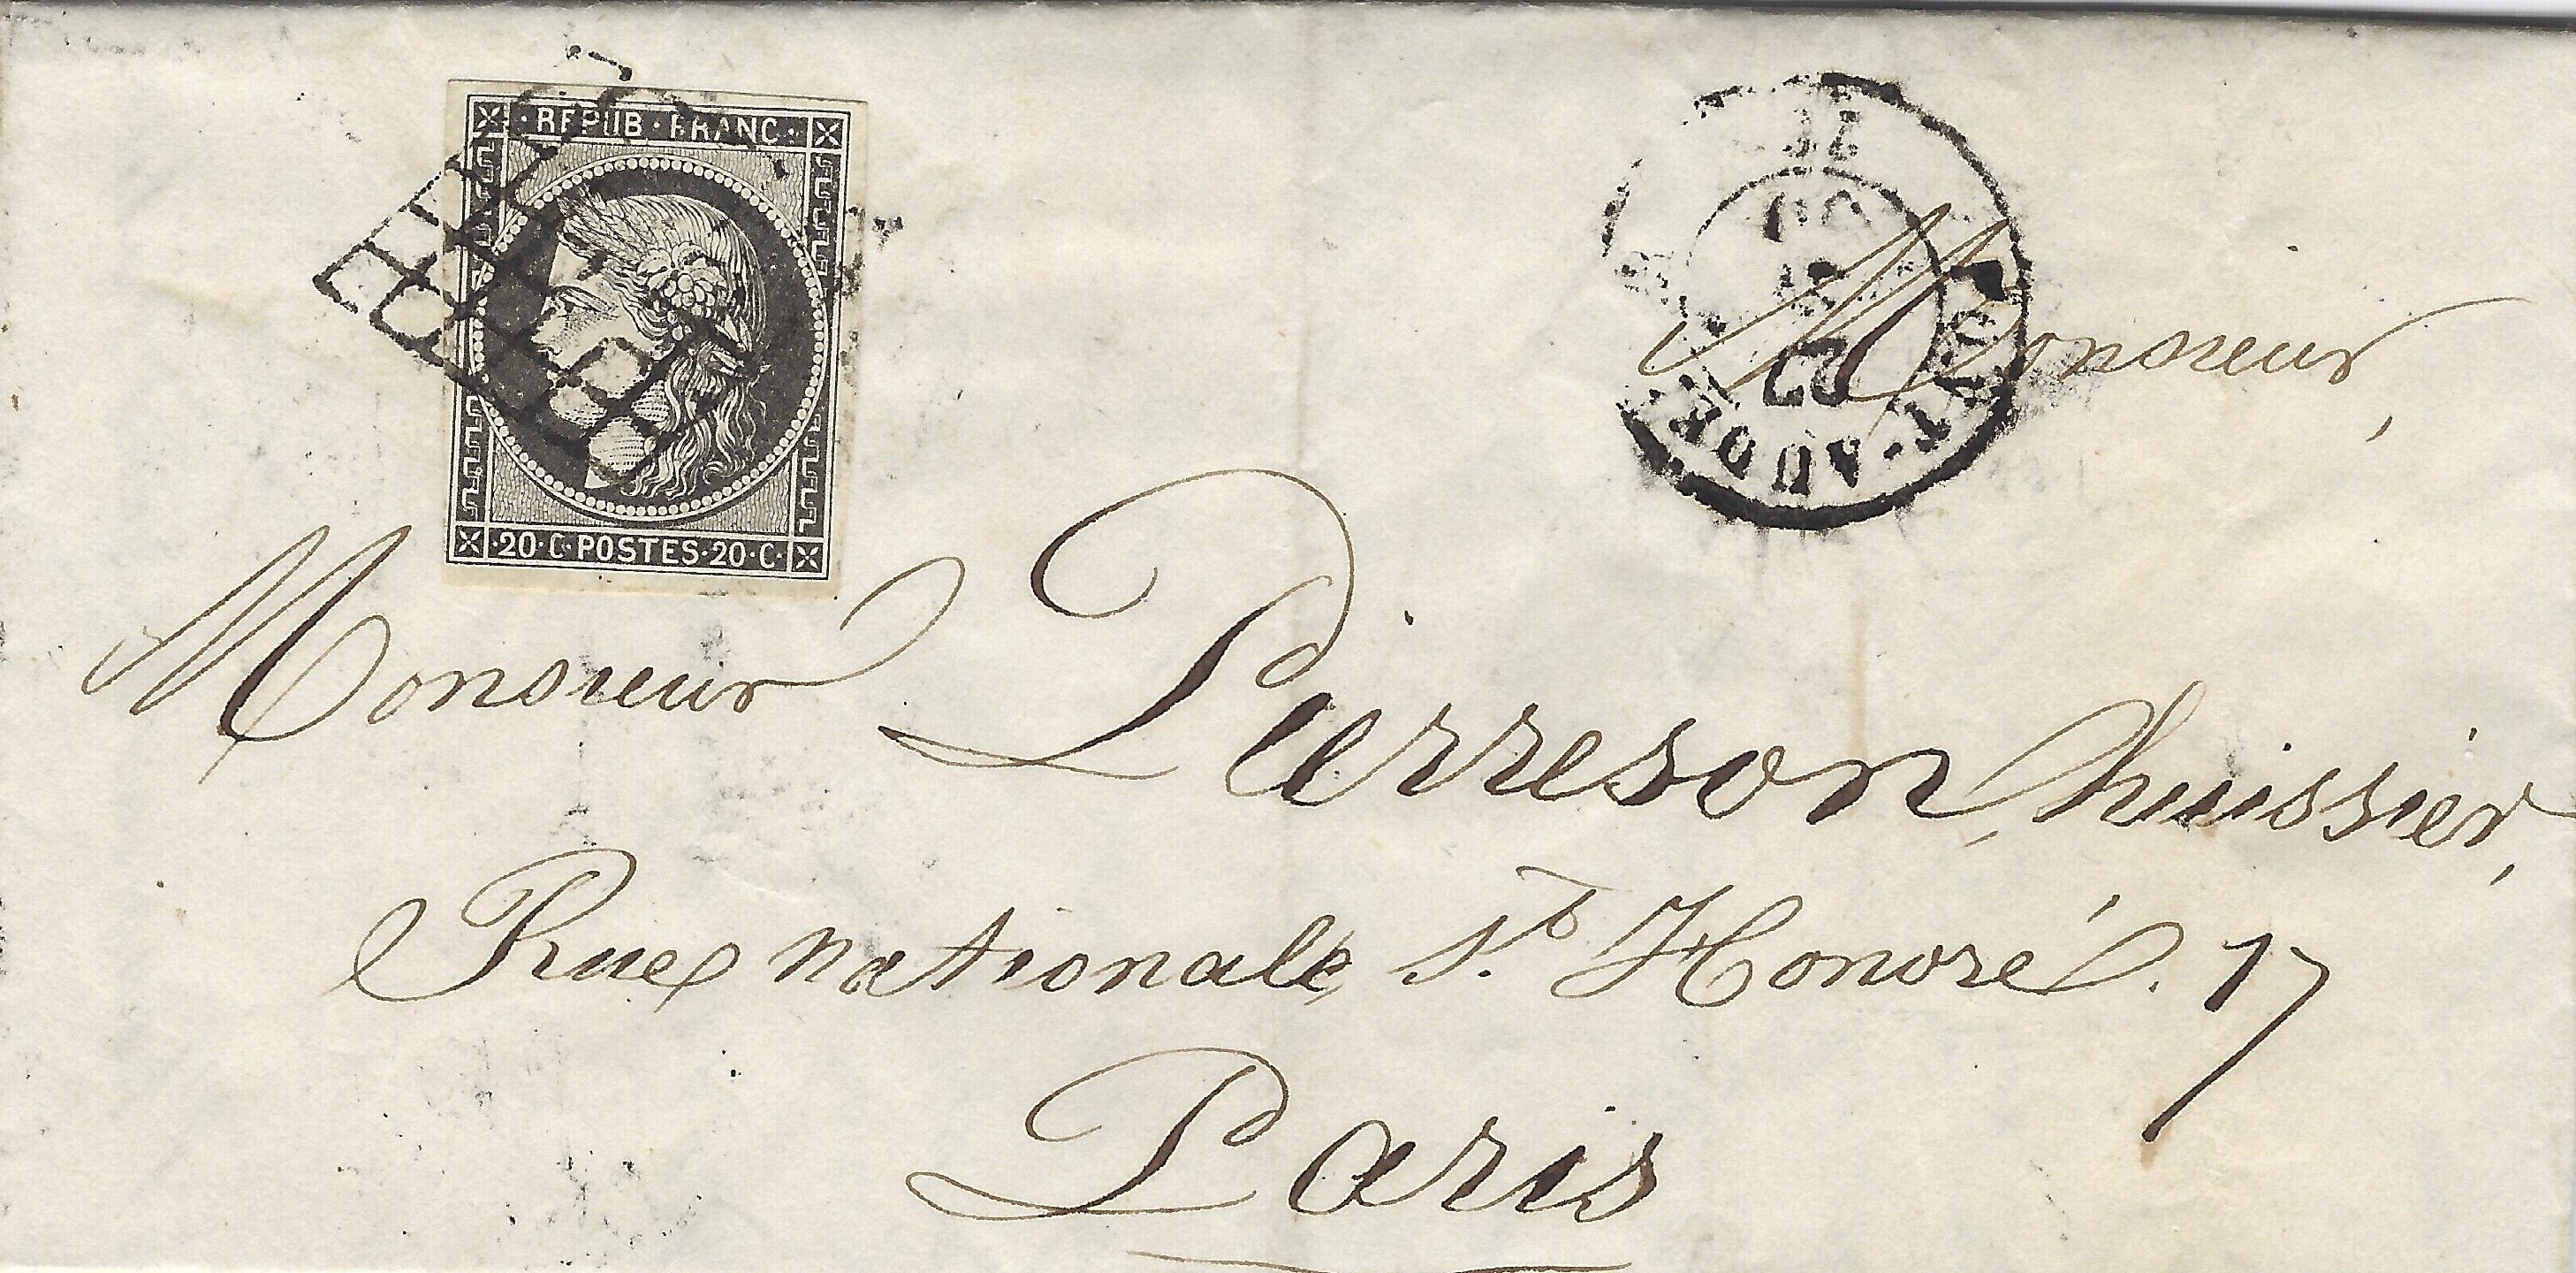 REPUB·FRANC·
·20·C·POSTES·20·C·
Monsieur,
Monsieur Pierreson, huissier,
Rue nationale, St. Honoré. 17
Paris